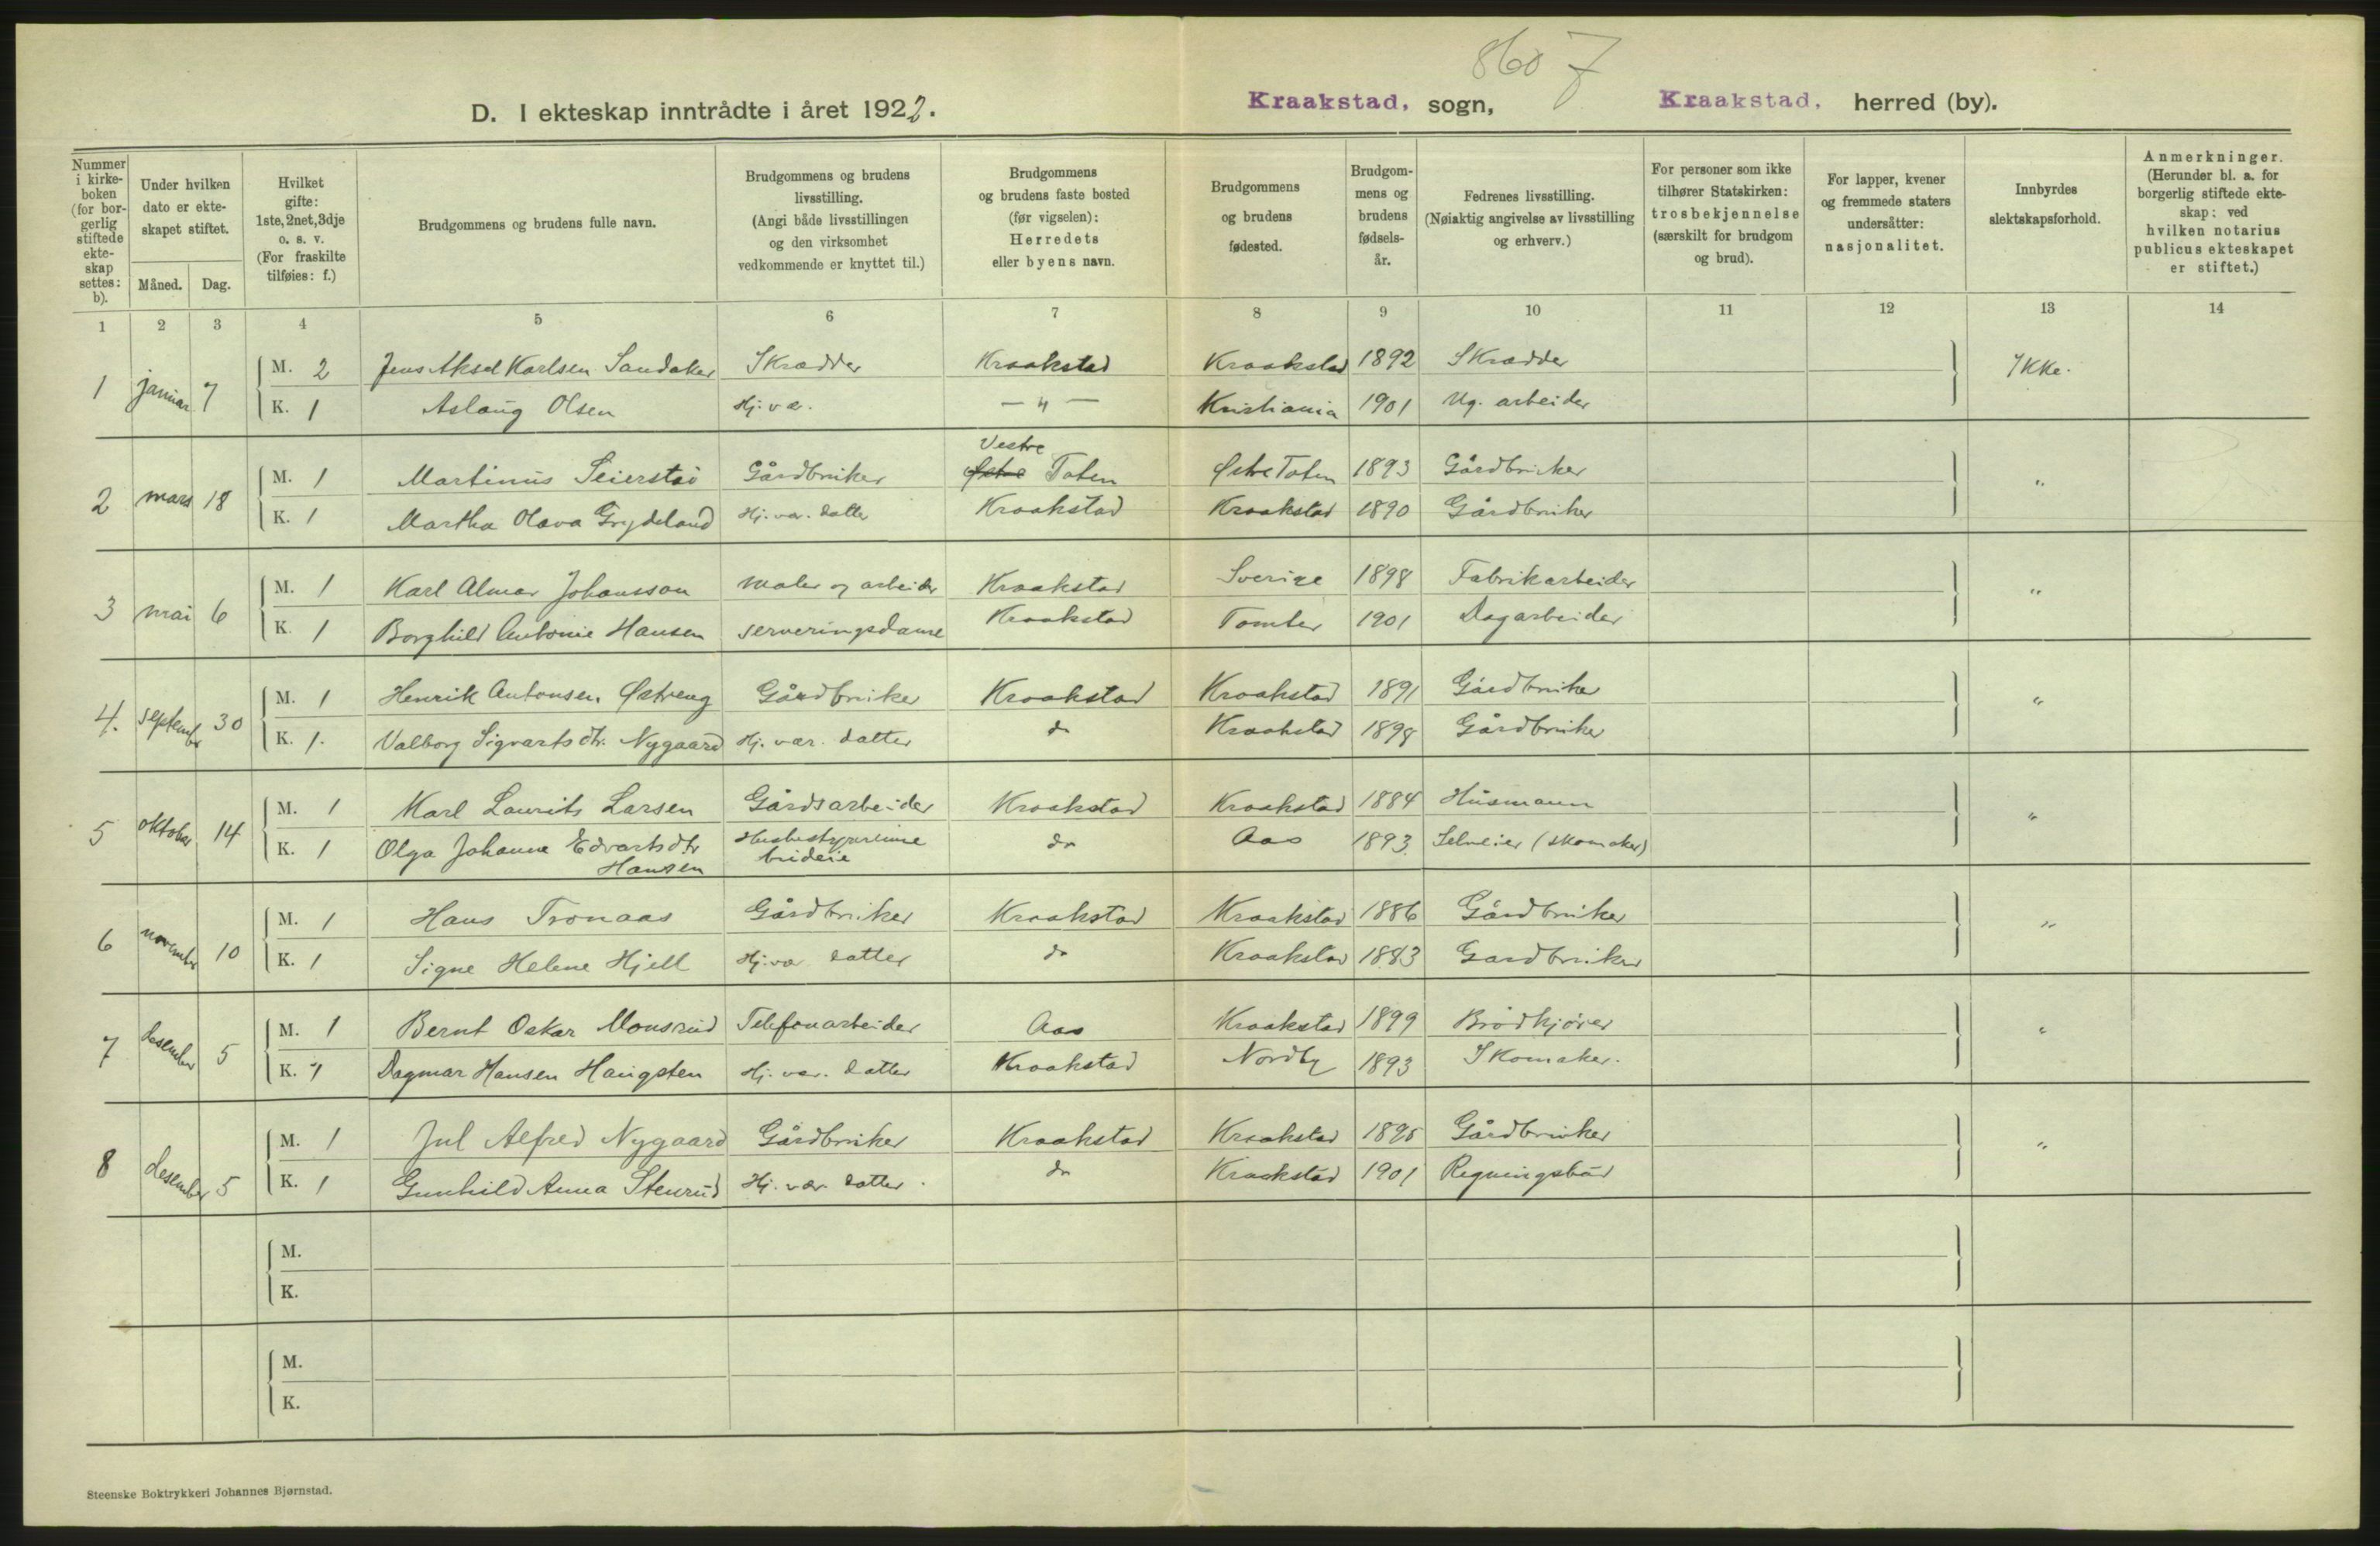 860 7
D. I ekteskap inntrådte i året 1922. Kraakstad, sogn, Kraakstad, herred (by).
Nummer i kirkeboken (for borgerlig stiftede ekteskap settes: b).
Under hvilken dato er ekteskapet stiftet.
Måned. Dag.
Hvilket gifte: 1ste, 2net, 3dje o. s. v. (For fraskilte tilføies: f.)
Brudgommens og brudens fulle navn.
Brudgommens og brudens livsstilling. (Angi både livsstillingen og den virksomhet vedkommende er knyttet til.)
Brudgommens og brudens faste bosted (før vigselen): Herredets eller byens navn.
Brudgommens og brudens fødested.
Brudgommens og brudens fødselsår.
Fedrenes livsstilling. (Nøiaktig angivelse av livsstilling og erhverv.)
For personer som ikke tilhører Statskirken: trosbekjennelse (særskilt for brudgom og brud).
For lapper, kvener og fremmede staters undersåtter: nasjonalitet.
Innbyrdes slektskapsforhold.
Anmerkninger. (Herunder bl. a. for borgerlig stiftede ekteskap: ved hvilken notarius publicus ekteskapet er stiftet.)
1 2 3 4 5 6 7 8 9 10 11 12 13 14
1 januar 7 M. 2 Jens Aksel Karlsen Sandaker Skrædder Kraakstad Kraakstad 1892 Skrædder Ikke.
K. 1 Aslaug Olsen Hj. væ. — " — Kristiania 1901 Ug. arbeider
Vestre
2 mars 18 M. 1 Martinus Seierstad Gårdbruker Østre Toten Østre Toten 1893 Gårdbruker "
K. 1 Martha Olava Grydeland Hj. vær. datter Kraakstad Kraakstad 1890 Gårdbruker
3 mai 6 M. 1 Karl Almar Johansson maler og arbeider Kraakstad Sverige 1898 Fabrikarbeider "
K. 1 Borghild Antonie Hansen serveringsdame Kraakstad Tomter 1901 Dagarbeider
4. september 30 M. 1 Henrik Antonsen Østreng Gårdbruker Kraakstad Kraakstad 1891 Gårdbruker "
K. 1. Valborg Sigvartsdtr. Nygaard Hj. vær. datter do Kraakstad 1898 Gårdbruker
5 oktober 14 M. 1 Karl Laurits Larsen Gårdsarbeider Kraakstad Kraakstad 1884 Husmann "
K. 1 Olga Johanne Edvartsdtr Husbestyrerinne do Aas 1893 Selveier (skomaker)
Hansen
6 november 10 M. 1 Hans Tronaas Gårdbruker Kraakstad Kraakstad 1886 Gårdbruker "
K. 1 Signe Helene Hjell Hj. vær datter do Kraakstad 1883 Gardbruker
7 desember 5 M. 1 Bernt Oskar Monsrud Telefonarbeider Aas Kraakstad 1899 Brødkjører "
K. 1 Dagmar Hansen Haugsten Hj. vær. datter Kraakstad Nordby 1893 Skomaker.
8 desember 5 M. 1 Jul Alfred Nygaard Gårdbruker Kraakstad Kraakstad 1895 Gårdbruker "
K. 1 Gunhild Anna Stenrud Hj. vær. datter. do Kraakstad 1901 Regningsbud
M.
K.
M.
K.
Steenske Boktrykkeri Johannes Bjørnstad.